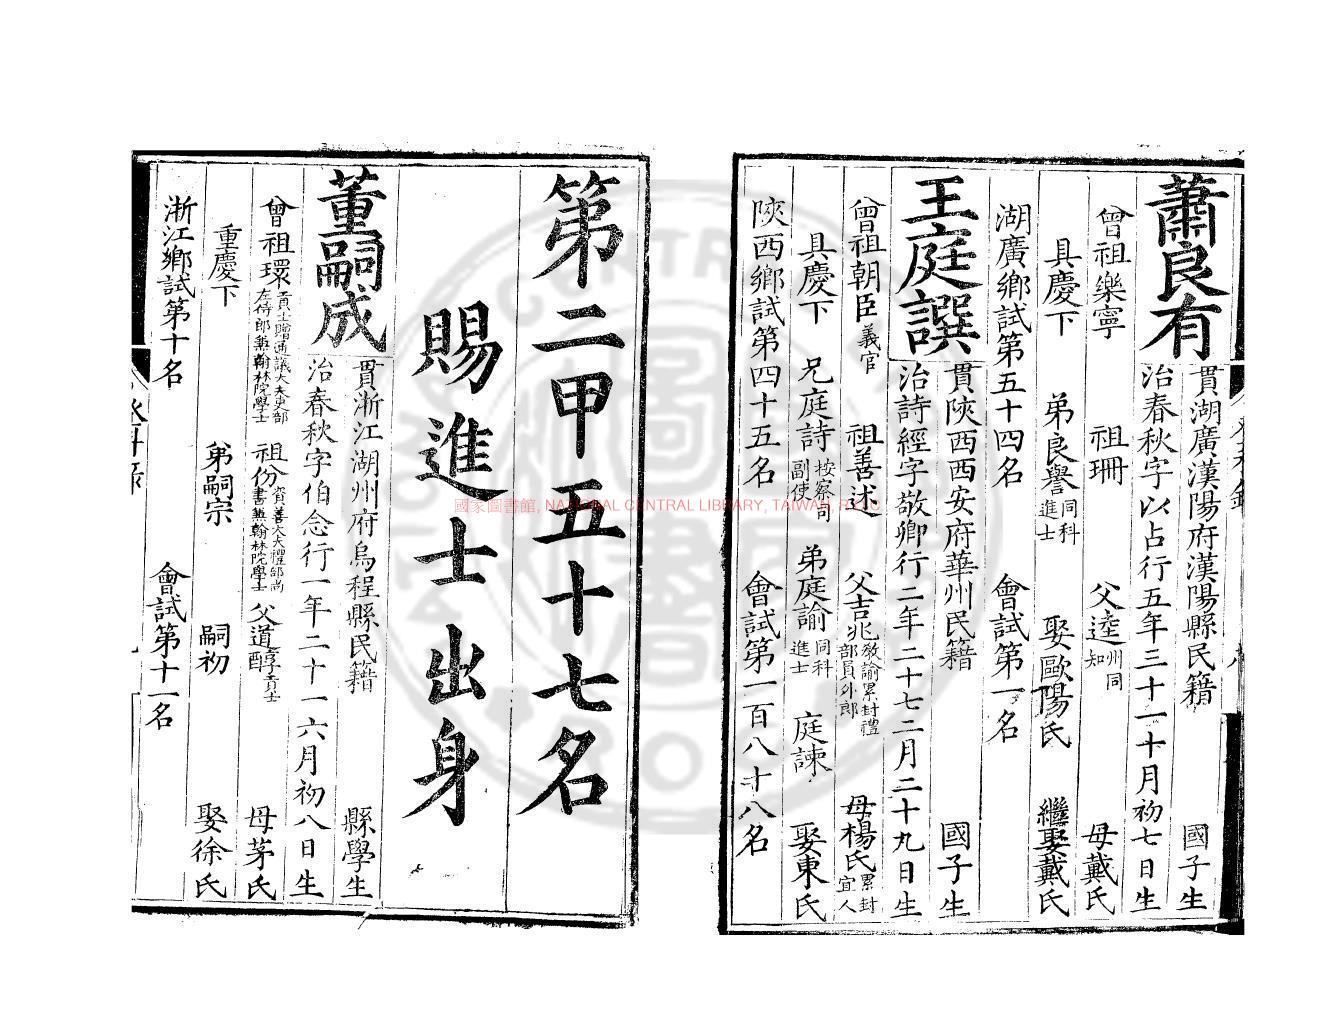 蕭良有
貫湖廣漢陽府漢陽縣民籍 國子生
治春秋字以占行五年三十一十月初七日生
曾祖樂寧 祖珊 父逵州同知 母戴氏
具慶下 弟良譽同科進士 娶歐陽氏 繼娶戴氏
湖廣鄉試第五十四名 會試第一名
王庭譔
貫陝西西安府華州民籍 國子生
治詩經字敬卿行二年二十七二月二十九日生
曾祖朝臣義官 祖善述 父吉兆教諭累封禮部員外郎 母楊氏累封宜人
具慶下 兄庭詩按察司副使 弟庭諭同科進士 庭諫 娶東氏
陝西鄉試第四十五名 會試第一百八十八名
第二甲五十七名
賜進士出身
董嗣成
貫浙江湖州府烏程縣民籍 縣學生
治春秋字伯念行一年二十一六月初八日生
曾祖環貢士贈通議大夫吏部左侍郎兼翰林院學士 祖份資善大夫禮部尚書兼翰林院學士 父道醇貢士 母茅氏
重慶下 弟嗣宗 嗣初 娶徐氏
浙江鄉試第十名 會試第十一名
國家圖書館, NATIONAL CENTRAL LIBRARY, TAIWAN, R.O.C.